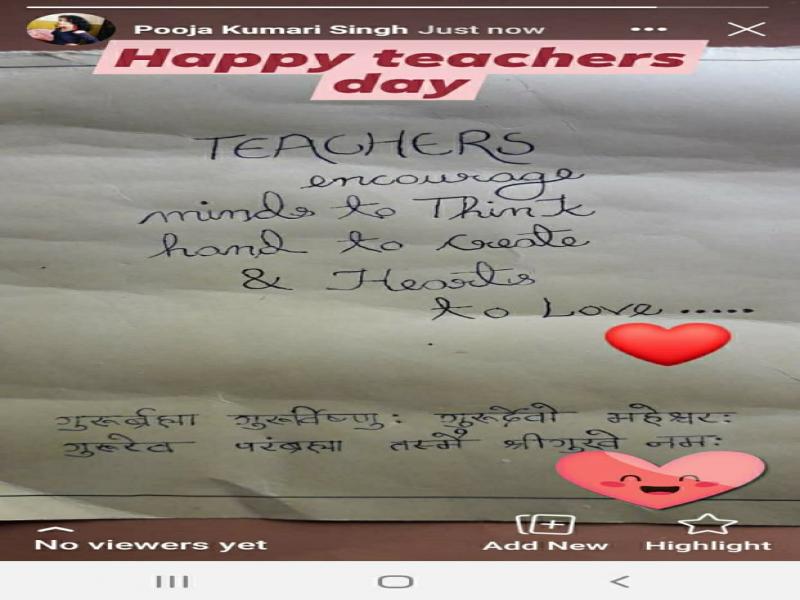 Pooja Kumari Singh Just now
Happy teachers
day
TEACHERS
encourage
minds to Think
hand to create
& Hearts
to Love .....
गुरुर्ब्रह्मा गुरुर्विष्णु: गुरुर्देवो महेश्वर:
गुरुरेव परंब्रह्मा तस्मै श्रीगुरवे नम:
No viewers yet
Add New Highlight